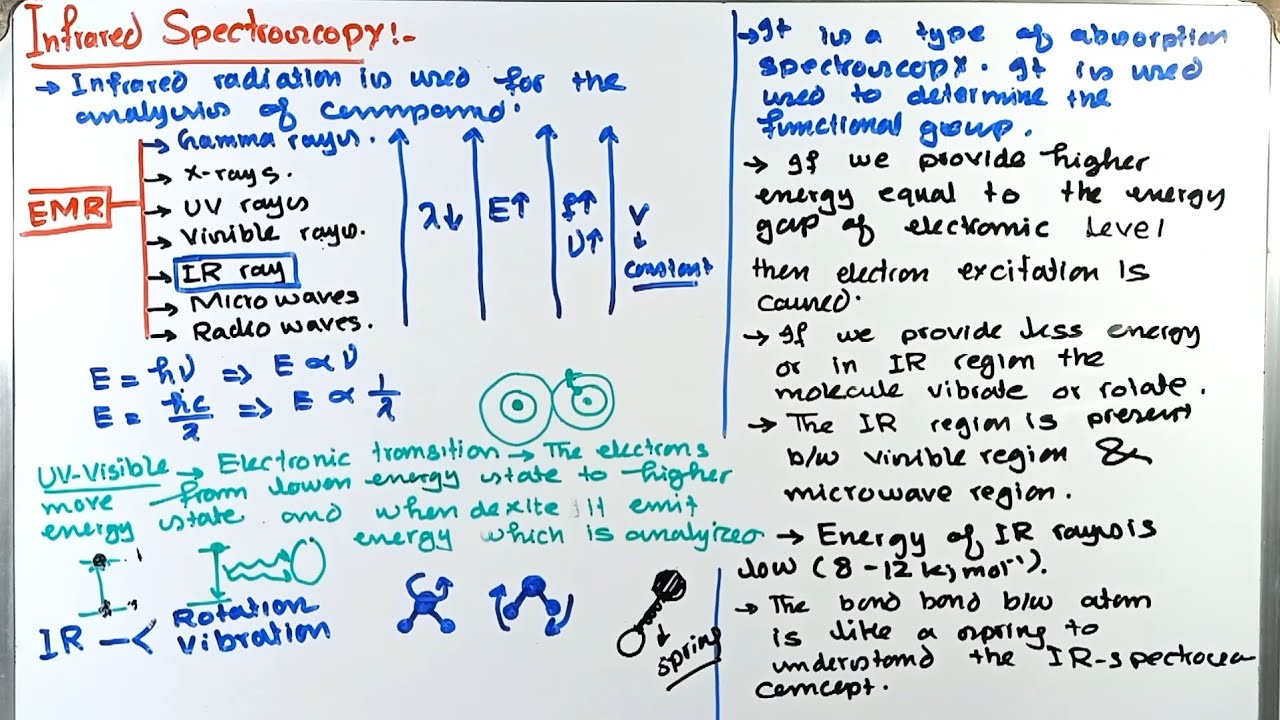 Infrared Spectrouscopy:-
→ Infrared radiation is used for the
analysis of compound.
→ Gamma rays.
→ X-rays.
EMR
→ UV rays
→ Visible rays.
→ IR ray
→ Micro waves
→ Radio waves.
λ↓
E↑
f↑
ν↑
V
↓
constant
E = hν ⇒ E ∝ ν
E = hc/λ ⇒ E ∝ 1/λ
UV-Visible → Electronic transition → The electrons
move from lower energy state to higher
energy state and when dexite it emit
energy which is analyized
IR –<
Rotation
Vibration
spring
→ It is a type of absorption
spectrouscopy. It is used
used to determine the
functional group.
→ If we provide higher
energy equal to the energy
gap of electronic level
then electron excitation is
caused.
→ If we provide less energy
or in IR region the
molecule vibrate or rotate.
→ The IR region is present
b/w visible region &
microwave region.
→ Energy of IR rays is
low (8-12 kj mol⁻¹).
→ The bond bond b/w atom
is like a spring to
understand the IR-
concept.